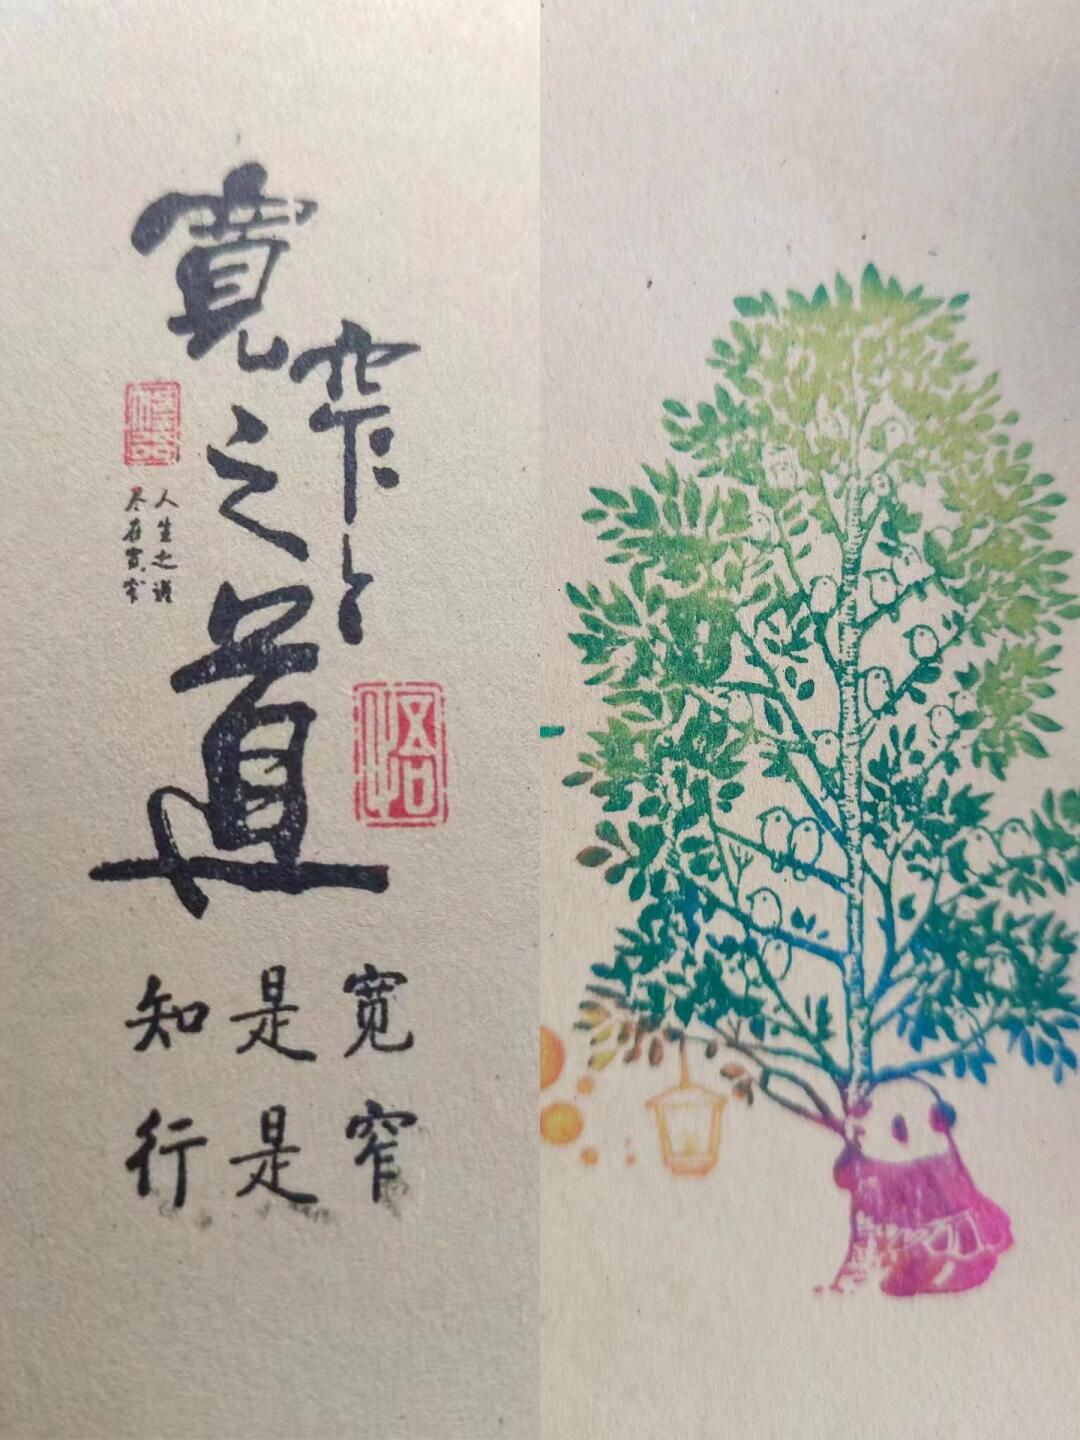 寬窄
之道
人生之道
尽在宽窄
悟
知是宽
行是窄